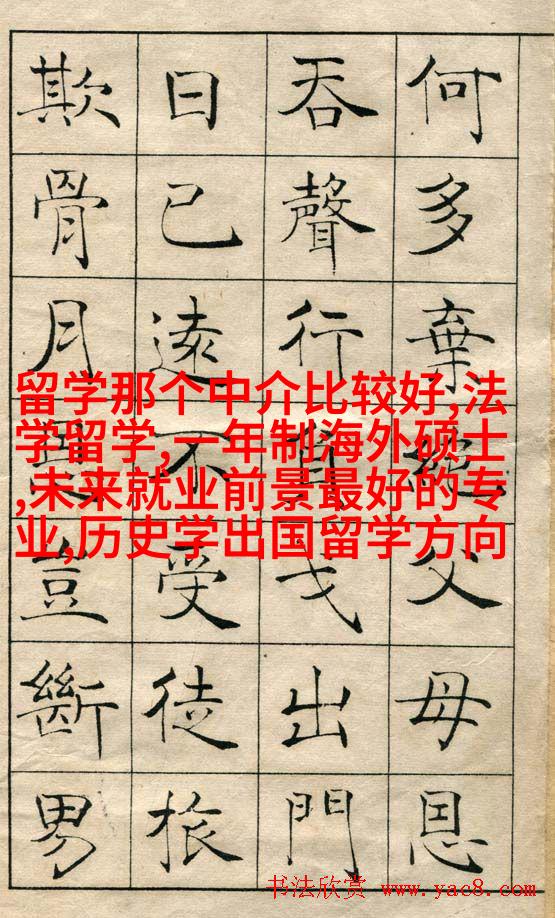 何多棄絕父母恩
吞聲行負戈出門
日已遠不受徒旅
欺骨月豈斷男
留学那个中介比较好,法
学留学,一年制海外硕士
,未来就业前景最好的专
业,历史学出国留学方向
书法欣赏 www.yac8.com